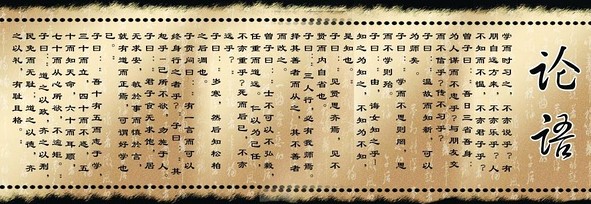 论语
学而时习之，不亦说乎？有
朋自远方来，不亦乐乎？人
不知而不愠，不亦君子乎？
曾子曰：吾日三省吾身：
为人谋而不忠乎？与朋友交
而不信乎？传不习乎？
子曰：温故而知新，可以
为师矣。
子曰：学而不思则罔，思
而不学则殆。
子曰：由，诲女知之乎！
知之为知之，不知为不知，
是知也。
子曰：见贤思齐焉，见不
贤而内自省也。
子曰：三人行，必有我师焉。
择其善者而从之，其不善者
而改之。
曾子曰：士不可以不弘毅，
任重而道远。仁以为己任，
不亦重乎？死而后已，不亦
远乎？
子曰：岁寒，然后知松柏
之后凋也。
子贡问曰：有一言而可以
终身行之者乎？子曰：其
恕乎！己所不欲，勿施于人
子曰：君子食无求饱，居
无求安，敏于事而慎于言
就有道而正焉，可谓好学也
子曰：吾十有五而志于学
三十而立，四十而不惑，五
十而知天命，六十而耳顺，
七十而从心所欲，不逾矩。
子曰：道之以政，齐之以刑，
民免而无耻；道之以德，齐
之以礼，有耻且格。